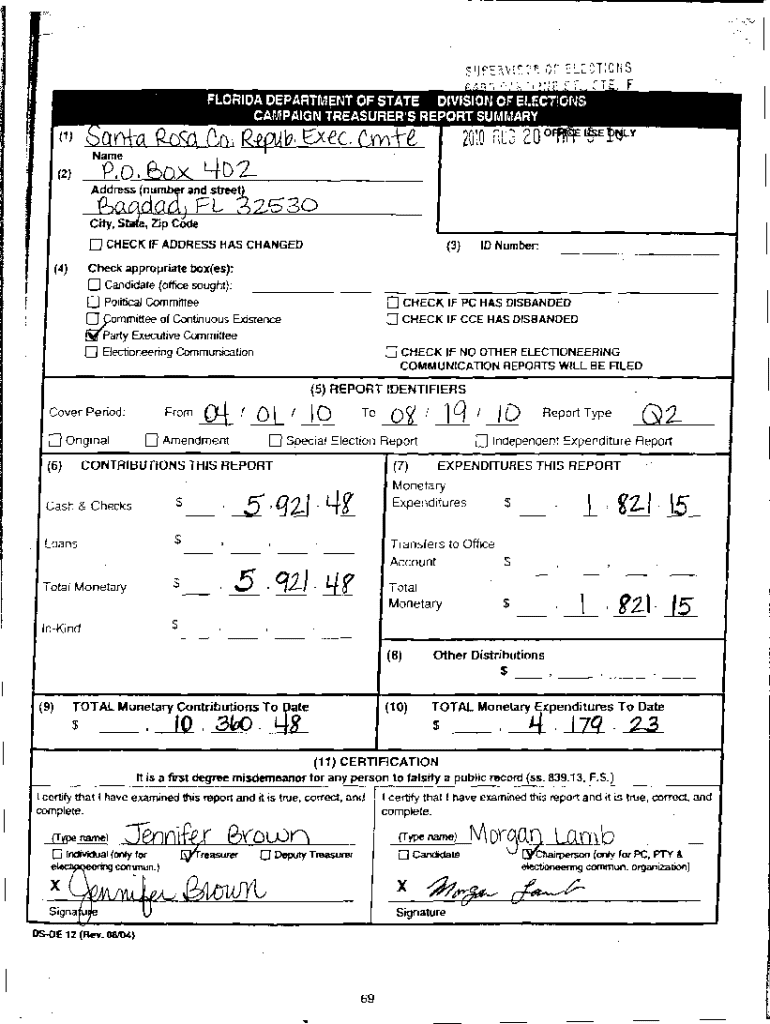 SUPERVISOR OF ELECTIONS
FLORIDA DEPARTMENT OF STATE DIVISION OF ELECTIONS
CAMPAIGN TREASURER'S REPORT SUMMARY
(1) Santa Rosa Co. Repub. Exec. Cmte
OFFICE USE ONLY
2010 AUG 20
Name
(2) P.O. Box 402
Address (number and street)
Bagdad, FL 32530
City, State, Zip Code
CHECK IF ADDRESS HAS CHANGED
(3) ID Number:
(4) Check appropriate box(es):
Candidate (office sought):
Political Committee
CHECK IF PC HAS DISBANDED
Committee of Continuous Existence
CHECK IF CCE HAS DISBANDED
Party Executive Committee
Electioneering Communication
CHECK IF NO OTHER ELECTIONEERING
COMMUNICATION REPORTS WILL BE FILED
(5) REPORT IDENTIFIERS
Cover Period: From 04 / 01 / 10 To 08 / 19 / 10 Report Type Q2
Original Amendment Special Election Report Independent Expenditure Report
(6) CONTRIBUTIONS THIS REPORT
Cash & Checks $ 5,921.48
Loans $
Total Monetary $ 5,921.48
In-Kind $
(7) EXPENDITURES THIS REPORT
Monetary
Expenditures $ 1,821.15
Transfers to Office
Account $
Total
Monetary $ 1,821.15
(8) Other Distributions
$
(9) TOTAL Monetary Contributions To Date
$ 10,360.48
(10) TOTAL Monetary Expenditures To Date
$ 4,179.23
(11) CERTIFICATION
It is a first degree misdemeanor for any person to falsify a public record (ss. 839.13, F.S.)
I certify that I have examined this report and it is true, correct, and
complete.
(Type name) Jennifer Brown
Individual (only for
electioneering commun.)
Treasurer Deputy Treasurer
X Jennifer Brown
Signature
I certify that I have examined this report and it is true, correct, and
complete.
(Type name) Morgan Lamb
Candidate Chairperson (only for PC, PTY &
electioneering commun. organization)
X Morgan Lamb
Signature
DS-DE 12 (Rev. 08/04)
69